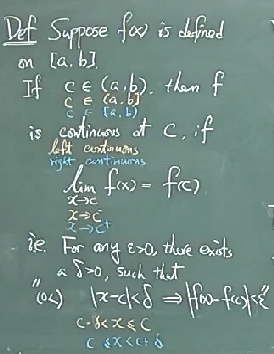 Def Suppose f(x) is defined
on [a,b].
If c ∈ (a,b). then f
c ∈ (a,b]
c ∈ [a,b)
is continuous at c, if
left continuous
right continuous
lim f(x) = f(c)
x→c
x→c⁻
x→c⁺
ie. For any ε>0, there exists
a δ>0, such that
"(0<) |x-c|<δ ⇒ |f(x)-f(c)|<ε"
c-δ<x≤c
c≤x<c+δ